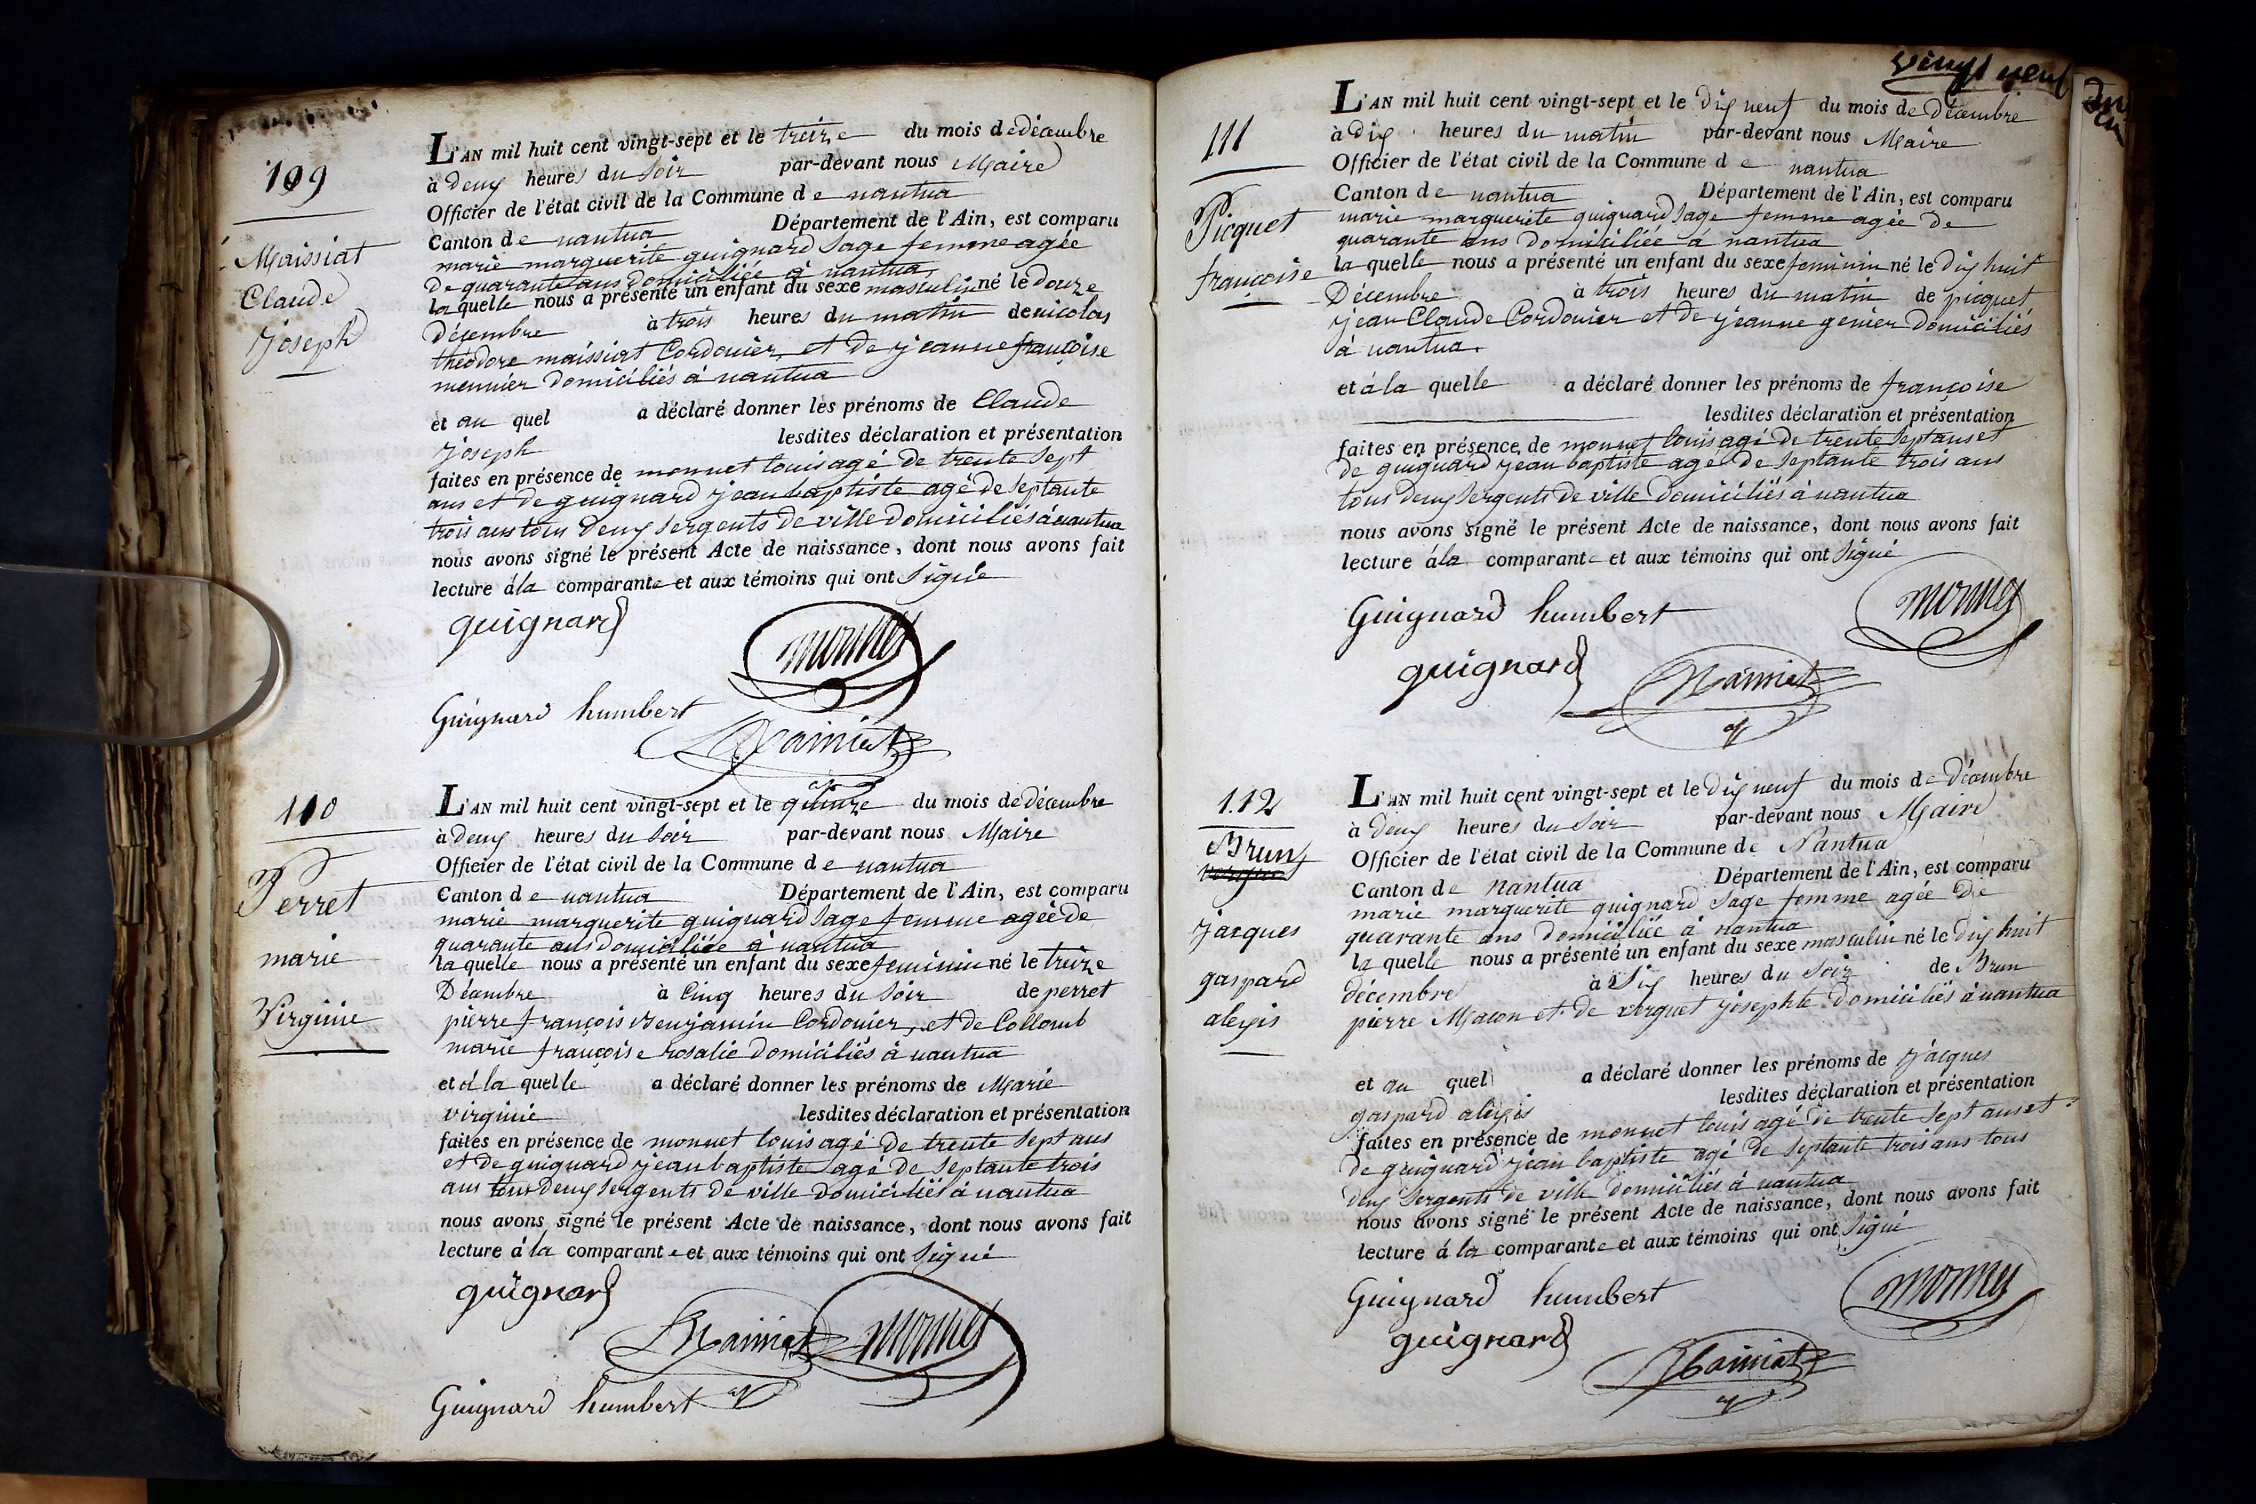 109
Maissiat
Claude
Joseph
L'AN mil huit cent vingt-sept et le treize du mois de décembre
à deux heures du soir par-devant nous Maire
Officier de l'état civil de la Commune de nantua
Canton de nantua Département de l'Ain, est comparu
marie marguerite guignard sage femme agée
de quarante ans domiciliée à nantua,
la quelle nous a présenté un enfant du sexe masculin né le douze
décembre à trois heures du matin de nicolas
théodore maissiat Cordonier, et de jeanne françoise
meunier domiciliés à nantua
et au quel a déclaré donner les prénoms de Claude
Joseph lesdites déclaration et présentation
faites en présence de monnet louis agé de trente sept
ans et de guignard jean baptiste agé de septante
trois ans tous deux sergents de ville domiciliés à nantua
nous avons signé le présent Acte de naissance, dont nous avons fait
lecture à la comparante et aux témoins qui ont signé
guignard
monnet
Guignard humbert
110
Perret
marie
Virginie
L'AN mil huit cent vingt-sept et le quinze du mois de décembre
à deux heures du soir par-devant nous Maire
Officier de l'état civil de la Commune de nantua
Canton de nantua Département de l'Ain, est comparu
marie marguerite guignard sage femme agée de
quarante ans domiciliée à nantua
la quelle nous a présenté un enfant du sexe feminin né le treize
Décembre à Cinq heures du soir de perret
pierre françois Benjamin Cordonier, et de Collomb
marie françoise rosalie domiciliés à nantua
et à la quelle a déclaré donner les prénoms de Marie
virginie lesdites déclaration et présentation
faites en présence de monnet louis agé de trente sept ans
et de guignard jean baptiste agé de septante trois
ans tous deux sergents de ville domiciliés à nantua
nous avons signé le présent Acte de naissance, dont nous avons fait
lecture à la comparante et aux témoins qui ont signé
guignard
monnet
Guignard humbert
vingt neuf
111
Picquet
françoise
L'AN mil huit cent vingt-sept et le dix neuf du mois de Décembre
à dix heures du matin par-devant nous Maire
Officier de l'état civil de la Commune de nantua
Canton de nantua Département de l'Ain, est comparu
marie marguerite guignard sage femme agée de
quarante ans domiciliée à nantua
la quelle nous a présenté un enfant du sexe feminin né le dix huit
Décembre à trois heures du matin de picquet
jean Claude Cordonier et de jeanne genier domiciliés
à nantua.
et à la quelle a déclaré donner les prénoms de françoise
lesdites déclaration et présentation
faites en présence de monnet louis agé de trente sept ans et
de guignard jean baptiste agé de septante trois ans
tous deux sergents de ville domiciliés à nantua
nous avons signé le présent Acte de naissance, dont nous avons fait
lecture à la comparante et aux témoins qui ont signé
Guignard humbert
monnet
guignard
112
Brun
jacques
gaspard
alexis
L'AN mil huit cent vingt-sept et le dix neuf du mois de Décembre
à deux heures du soir par-devant nous Maire
Officier de l'état civil de la Commune de Nantua
Canton de nantua Département de l'Ain, est comparu
marie marguerite guignard sage femme agée de
quarante ans domiciliée à nantua
la quelle nous a présenté un enfant du sexe masculin né le dix huit
décembre à six heures du soir de Brun
pierre Macon et de verguet josephte domiciliés à nantua
et au quel a déclaré donner les prénoms de jacques
gaspard alexis lesdites déclaration et présentation
faites en présence de monnet louis agé de trente sept ans et
de guignard jean baptiste agé de septante trois ans tous
deux sergents de ville domiciliés à nantua
nous avons signé le présent Acte de naissance, dont nous avons fait
lecture à la comparante et aux témoins qui ont signé
Guignard humbert
monnet
guignard